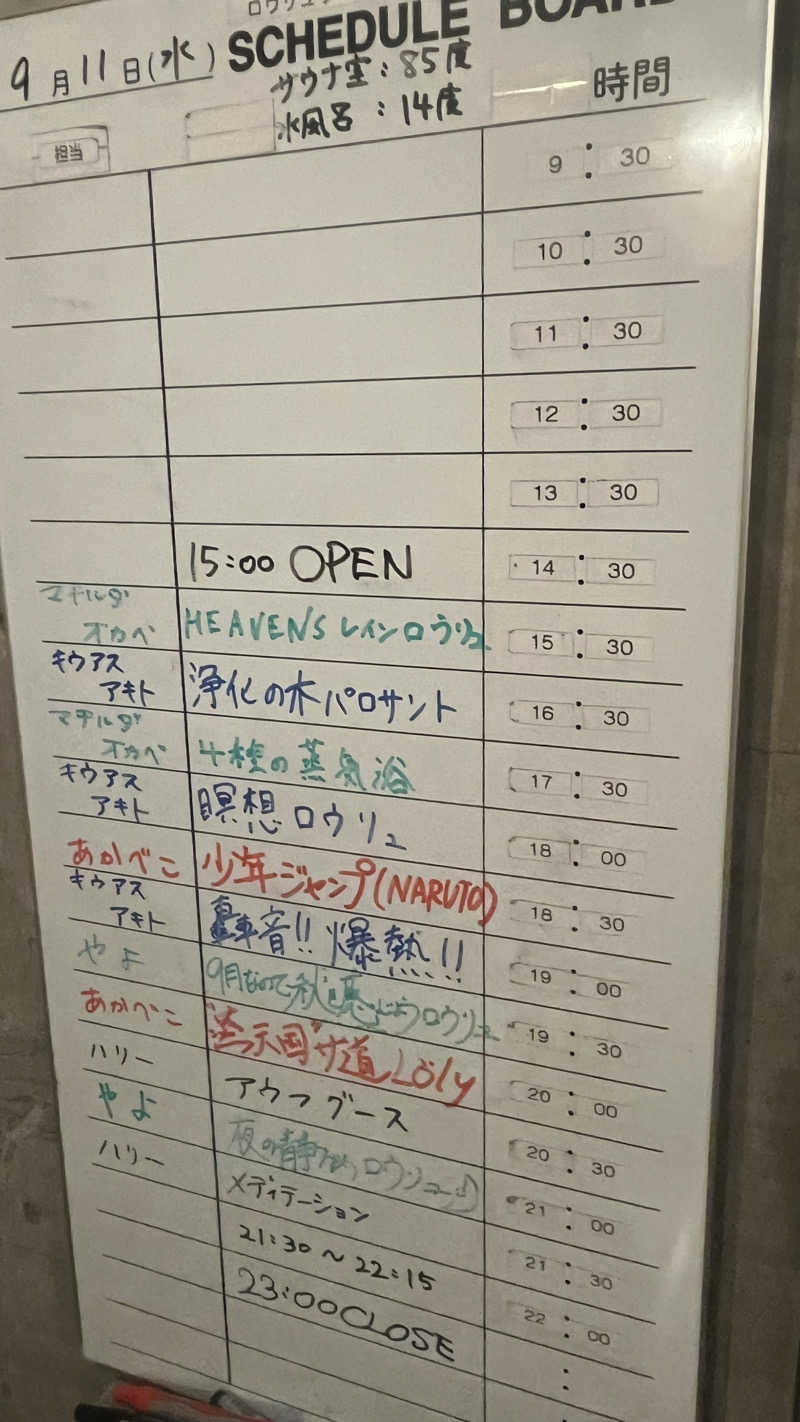 9月11日(水) SCHEDULE BOARD
サウナ室:85度
水風呂:14度
担当 時間
9:30
10:30
11:30
12:30
13:30
15:00 OPEN 14:30
マチルダ オカベ HEAVENS レインロウリュ 15:30
キウアス アキト 浄化の木パロサント 16:30
マチルダ オカベ 4種の蒸気浴 17:30
キウアス アキト 瞑想ロウリュ 18:00
あかべこ 少年ジャンプ(NARUTO) 18:30
キウアス アキト 轟音!! 爆熱!! 19:00
やよ 9月なので秋を感じようロウリュ 19:30
あかべこ 天国サ道Löly 20:00
ハリー アウフグース 20:30
やよ 夜の静かなロウリュ 21:00
ハリー メディテーション 21:30
21:30~22:15 22:00
23:00 CLOSE :